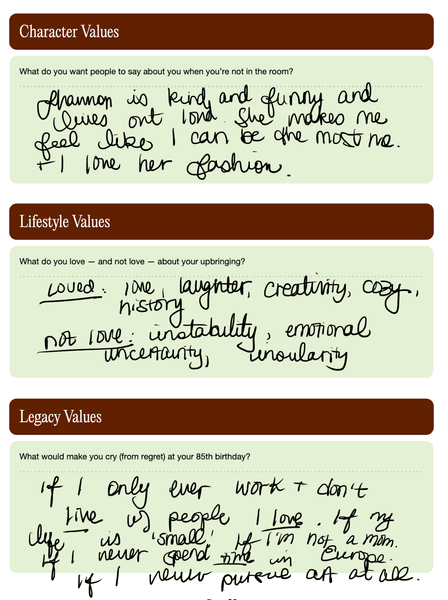 Character Values
What do you want people to say about you when you're not in the room?
Shannon is kind, and funny and
lives out loud. She makes me
feel like I can be the most me.
+ I love her fashion.
Lifestyle Values
What do you love — and not love — about your upbringing?
loved: love, laughter, creativity, cozy,
history
not love: instability, emotional
uncertainty, insularity
Legacy Values
What would make you cry (from regret) at your 85th birthday?
If I only ever work + don't
live w/ people I love. If my
life is 'small.' If I'm not a mom.
If I never spend time in Europe.
If I never pursue art at all.